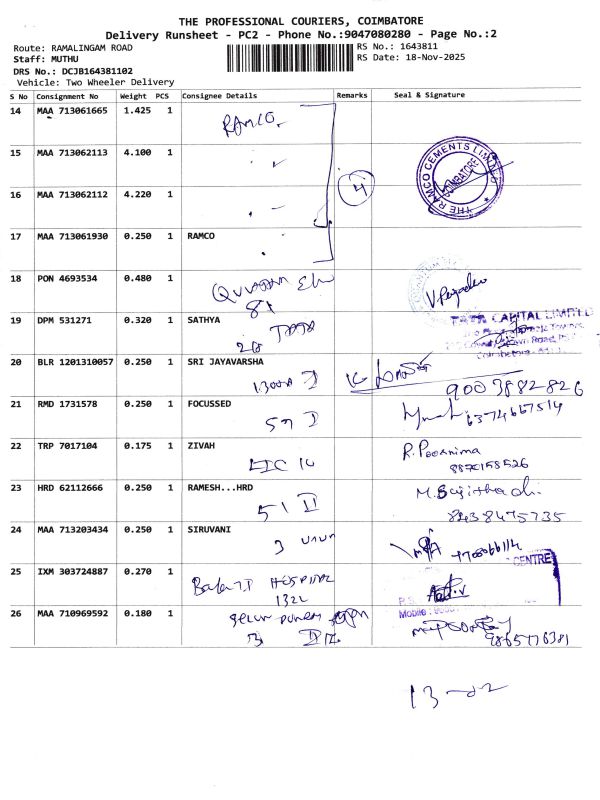 THE PROFESSIONAL COURIERS, COIMBATORE
Delivery Runsheet - PC2 - Phone No.:9047080280 - Page No.:2
Route: RAMALINGAM ROAD
RS No.: 1643811
Staff: MUTHU
RS Date: 18-Nov-2025
DRS No.: DCJB164381102
Vehicle: Two Wheeler Delivery
S No Consignment No Weight PCS Consignee Details Remarks Seal & Signature
14 MAA 713061665 1.425 1 RAMCO.
15 MAA 713062113 4.100 1
THE RAMCO CEMENTS LIMITED
COIMBATORE
16 MAA 713062112 4.220 1
4
17 MAA 713061930 0.250 1 RAMCO
18 PON 4693534 0.480 1
19 DPM 531271 0.320 1 SATHYA
TATA CAPITAL LIMITED
20 BLR 1201310057 0.250 1 SRI JAYAVARSHA
9003882826
21 RMD 1731578 0.250 1 FOCUSSED
6374667514
22 TRP 7017104 0.175 1 ZIVAH
LIC
R. Poornima
8870158526
23 HRD 62112666 0.250 1 RAMESH...HRD
51 II
8438475735
24 MAA 713203434 0.250 1 SIRUVANI
3
CENTRE
25 IXM 303724887 0.270 1
HOSPITAL
1322
Mobile :
26 MAA 710969592 0.180 1
9865776381
13-22